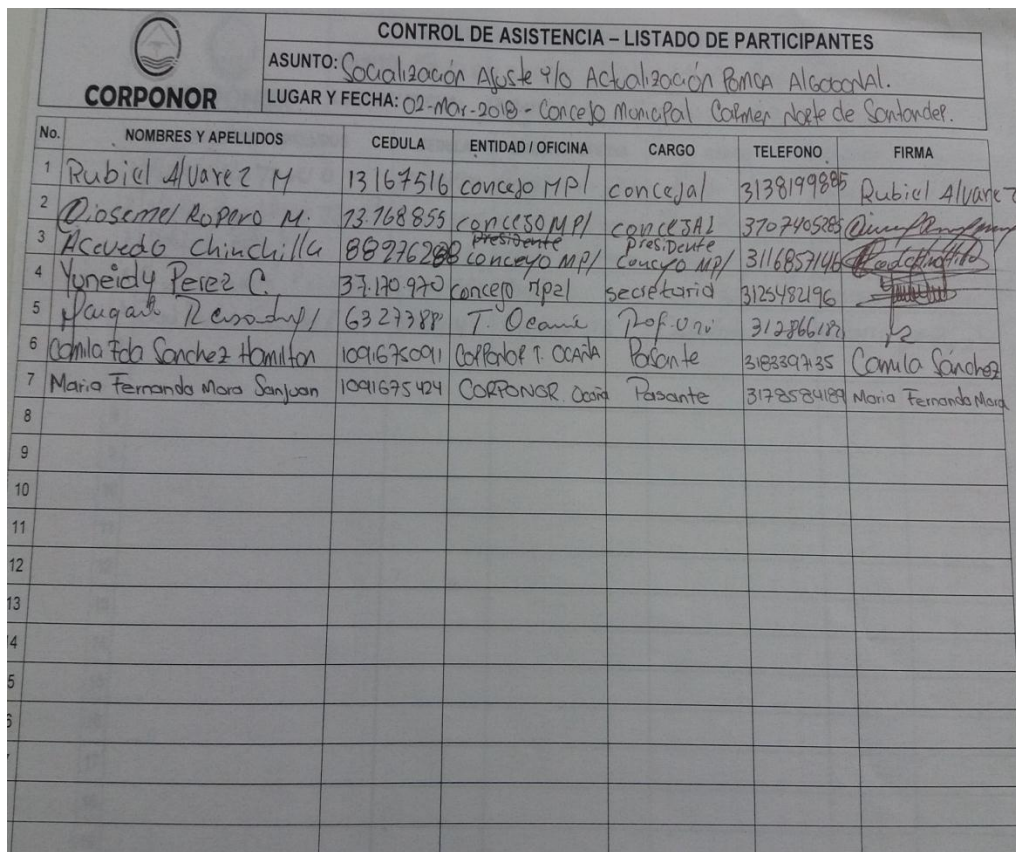 CORPONOR
CONTROL DE ASISTENCIA – LISTADO DE PARTICIPANTES
ASUNTO: Socialización Ajuste y/o Actualización POMCA ALGODONAL.
LUGAR Y FECHA: 02-Mar-2018 - Concejo Municipal Carmen Norte de Santander.
No. NOMBRES Y APELLIDOS CEDULA ENTIDAD / OFICINA CARGO TELEFONO FIRMA
1 Rubiel Alvarez M 13167516 concejo MPl concejal 3138199885 Rubiel Alvarez
2 Diosemel Ropero M. 13.168855 conceso MPl conceJAL
3 Acevedo Chinchilla presidente conceyo MP/ Presidente conceyo MP/ 3116857146
4 Yuneidy Perez C. 37.170.970 concejo mpal secretaria 3125482196
5 6327388 T. Ocaña Prof. Uni
6 Camila Eda Sanchez Hamilton 1091675091 CORPONOR T. OCAÑA Pasante 3183397135 Camila Sánchez
7 Maria Fernanda Mora Sanjuan 1091675424 CORPONOR. Ocaña Pasante 3178584189 Maria Fernanda Mora
8
9
10
11
12
13
4
5